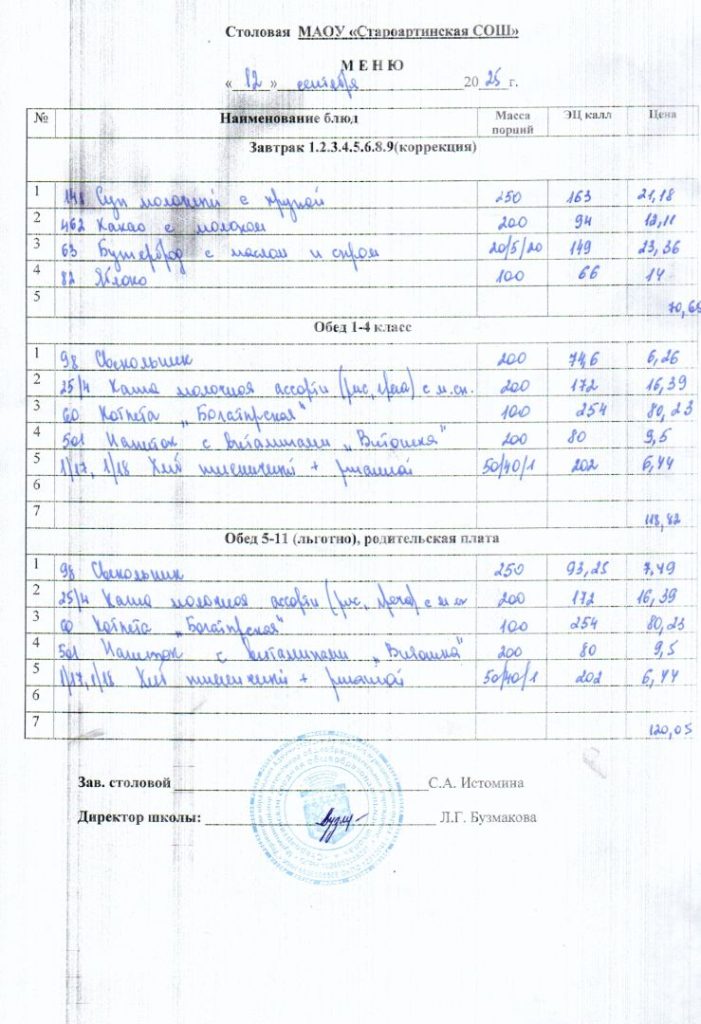 Столовая МАОУ «Староартинская СОШ»
М Е Н Ю
« 12 » сентября 20 25 г.
№ Наименование блюд Масса порций ЭЦ калл Цена
Завтрак 1.2.3.4.5.6.8.9(коррекция)
1 Суп молочный с крупой 250 163 21,18
2 462 Какао с молоком 200 94 12,11
3 63 Бутерброд с маслом и сыром 20/5/20 149 23,36
4 82 Яблоко 100 66 14
5 70,65
Обед 1-4 класс
1 98 Свекольник 200 74,6 6,26
2 25/4 Каша молочная ассорти (рис, греча) с м.сл. 200 172 16,39
3 60 Котлета „Богатырская" 100 254 80,23
4 501 Напиток с витаминами „Витошка" 200 80 9,5
5 1/17, 1/18 Хлеб пшеничный + ржаной 50/40/1 202 6,44
6
7 118,82
Обед 5-11 (льготно), родительская плата
1 98 Свекольник 250 93,25 7,49
2 25/4 Каша молочная ассорти (рис, греча) с м сл 200 172 16,39
3 60 Котлета „Богатырская" 100 254 80,23
4 501 Напиток с витаминами „Витошка" 200 80 9,5
5 1/17, 1/18 Хлеб пшеничный + ржаной 50/40/1 202 6,44
6
7 120,05
Зав. столовой С.А. Истомина
Директор школы: Л.Г. Бузмакова